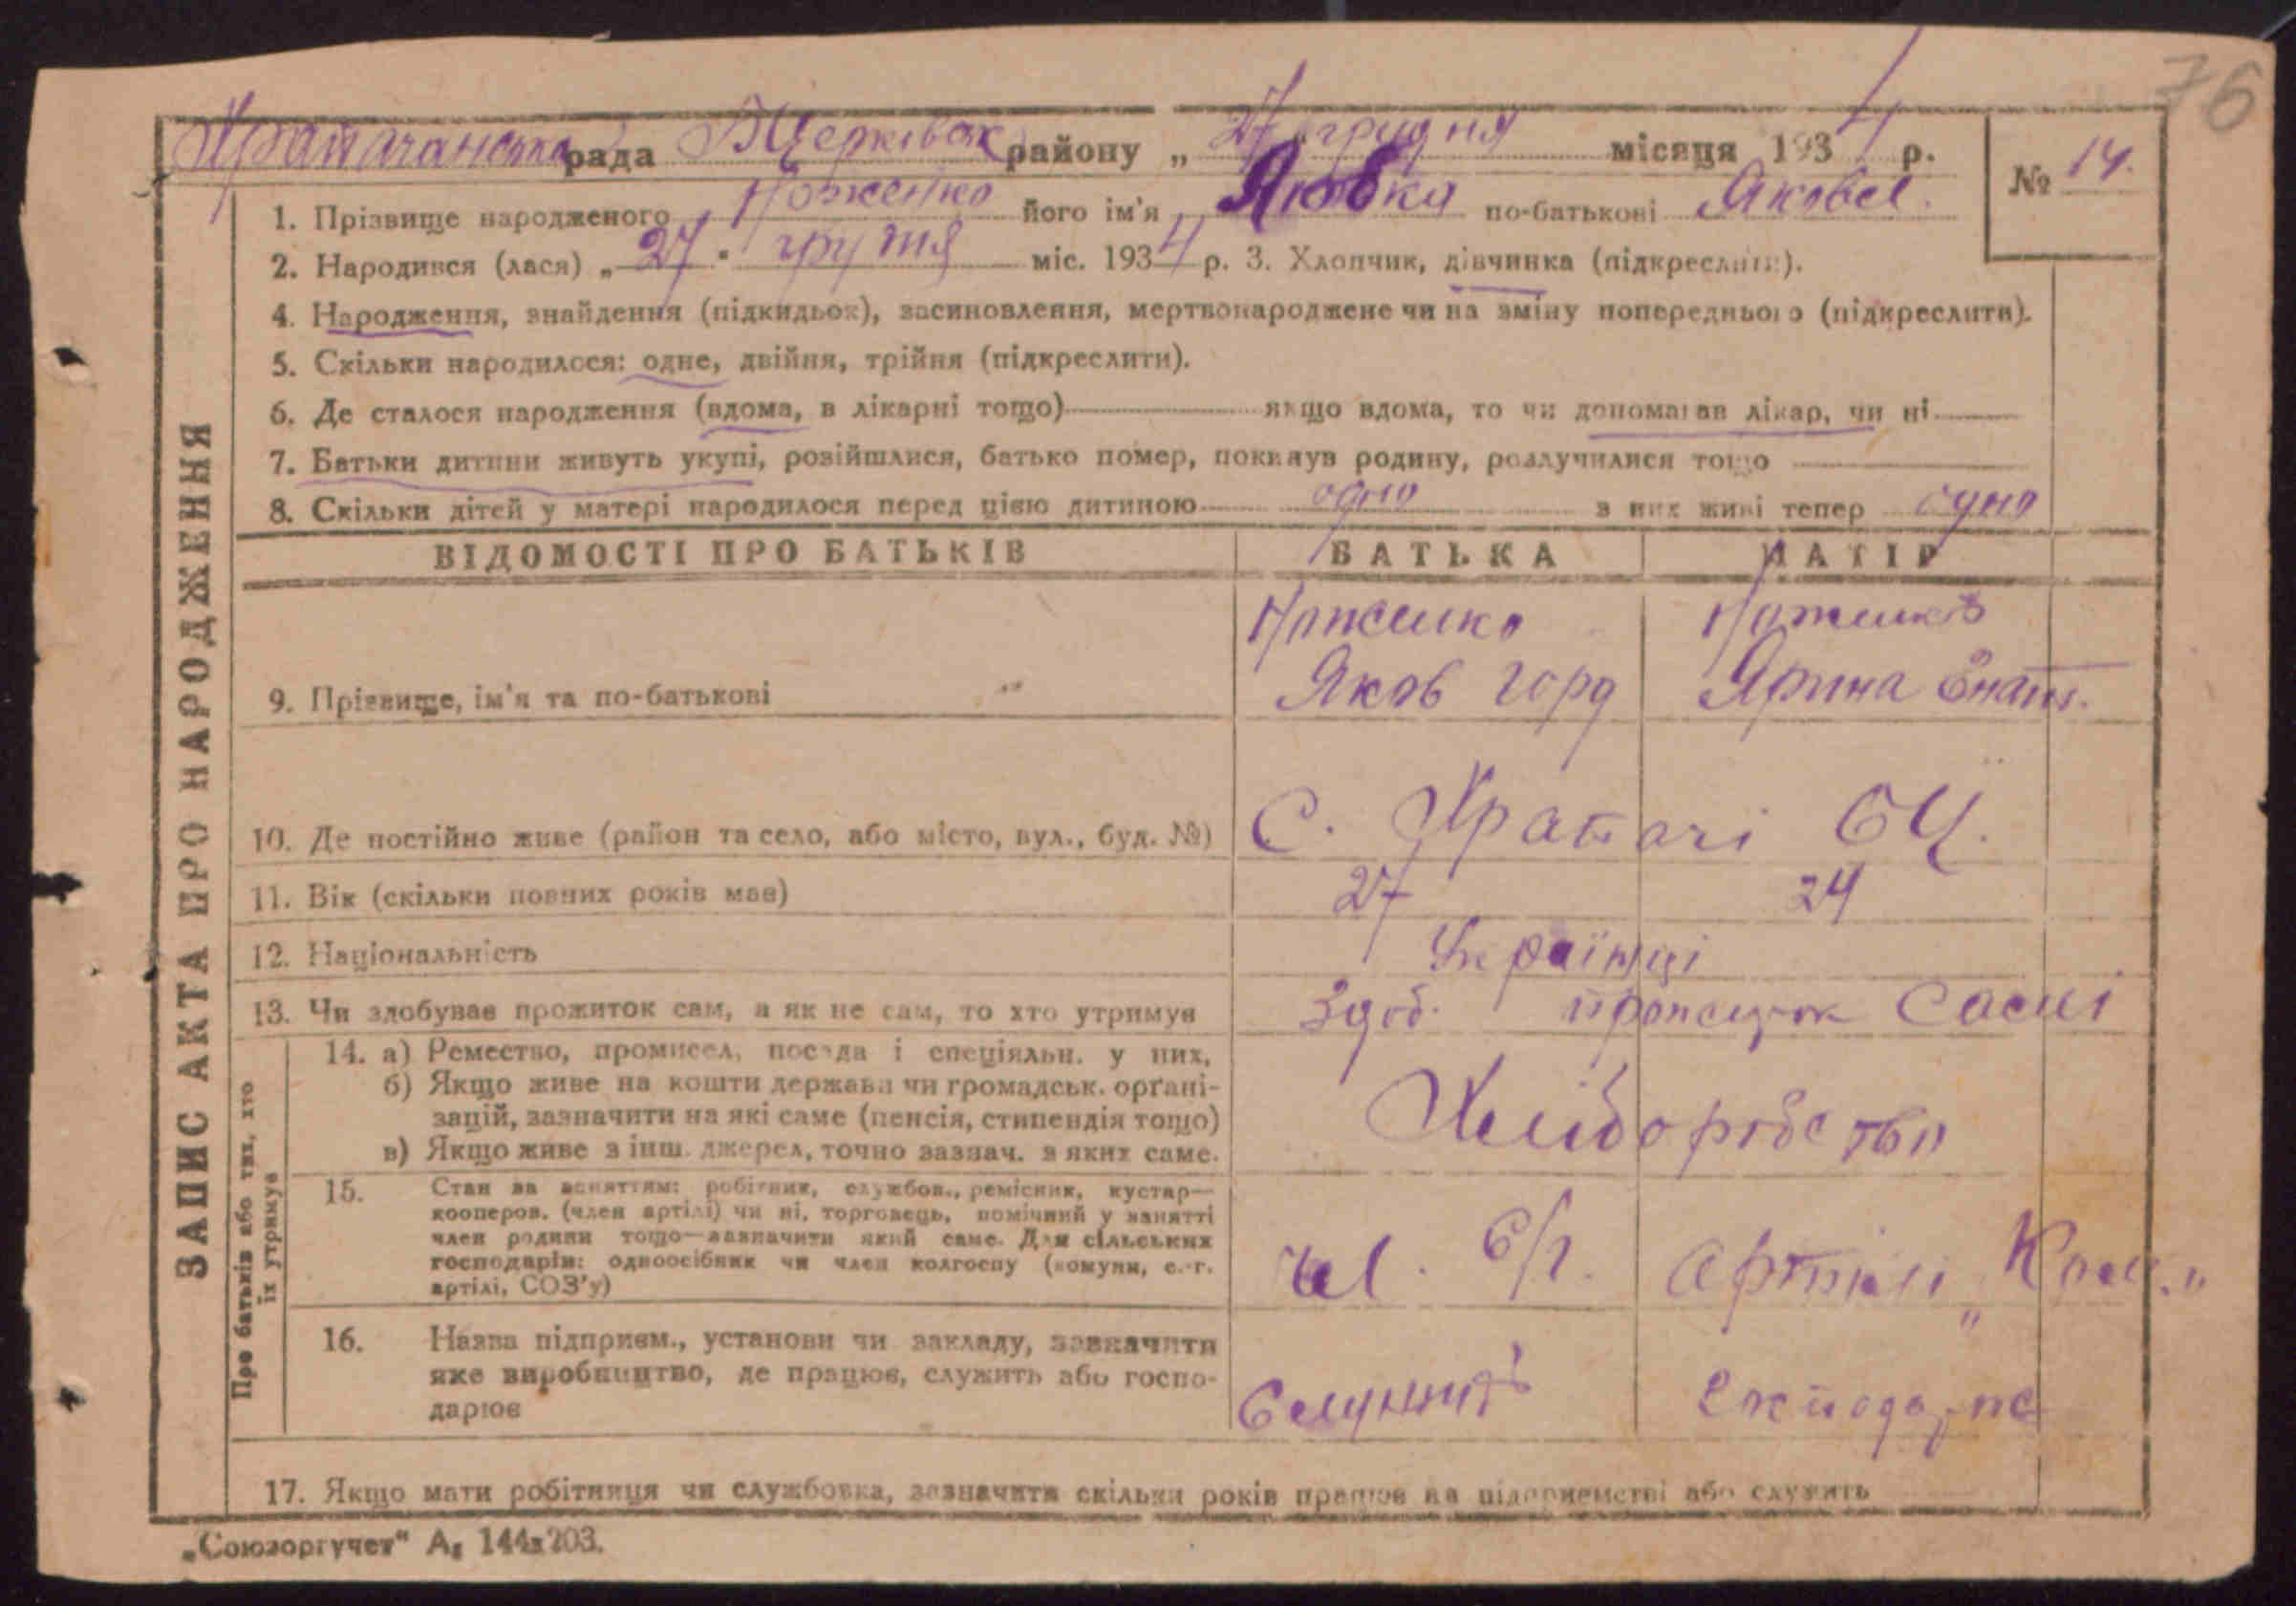 76
Храпачанська рада Б Церківськ району „ 27 " грудня місяця 1934 р.
№ 14.
1. Прізвище народженого Ноженко його ім'я по-батькові Яковл.
2. Народився (лася) „ 27 " грудня міс. 1934 р. 3. Хлопчик, дівчинка (підкреслити).
4. Народження, знайдення (підкидьок), засиновлення, мертвонароджене чи на зміну попереднього (підкреслити).
5. Скільки народилося: одне, двійня, трійня (підкреслити).
6. Де сталося народження (вдома, в лікарні тощо) якщо вдома, то чи допомагав лікар, чи ні
7. Батьки дитини живуть укупі, розійшлися, батько помер, покинув родину, розлучилися тощо
8. Скільки дітей у матері народилося перед цією дитиною одно з них живі тепер одно
ЗАПИС АКТА ПРО НАРОДЖЕННЯ
ВІДОМОСТІ ПРО БАТЬКІВ БАТЬКА МАТІР
Ноженко Ноженко
9. Прізвище, ім'я та по-батькові Яков Горд Ярина Гнат.
10. Де постійно живе (район та село, або місто, вул., буд. №) С. Храпачі БЦ.
11. Вік (скільки повних років має) 27 24
12. Національність Українці
13. Чи здобуває прожиток сам, а як не сам, то хто утримує Здоб. прожиток самі
Про батьків або тих, хто їх утримує
14. а) Ремество, промисел, посада і спеціяльн. у них,
б) Якщо живе на кошти держави чи громадськ. орґані-
зацій, зазначити на які саме (пенсія, стипендія тощо)
в) Якщо живе з інш. джерел, точно зазнач. з яких саме.
Хліборобство
15. Стан за заняттям: робітник, службов., ремісник, кустар—
кооперов. (член артілі) чи ні, торговець, помічний у занятті
член родини тощо—зазначити який саме. Для сільських
господарів: одноосібник чи член колгоспу (комуни, с.-г.
артілі, СОЗ'у)
чл. с/г. Артілі
16. Назва підприєм., установи чи закладу, зазначити
яке виробництво, де працює, служить або госпо-
дарює
17. Якщо мати робітниця чи службовка, зазначити скільки років працює на підприємстві або служить
„Союзоргучет" А₅ 144х203.